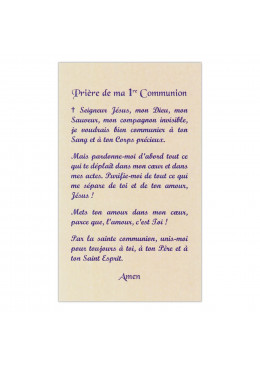 Prière de ma 1re Communion
† Seigneur Jésus, mon Dieu, mon
Sauveur, mon compagnon invisible,
je voudrais bien communier à ton
Sang et à ton Corps précieux.
Mais pardonne-moi d'abord tout ce
qui te déplaît dans mon cœur et dans
mes actes. Purifie-moi de tout ce qui
me sépare de toi et de ton amour,
Jésus !
Mets ton amour dans mon cœur,
parce que, l'amour, c'est Toi !
Par la sainte communion, unis-moi
pour toujours à toi, à ton Père et à
ton Saint Esprit.
Amen